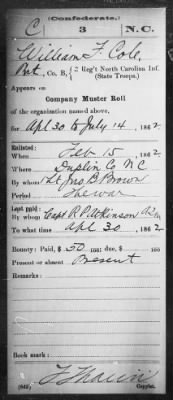 (Confederate.)
C 3 N.C.
William F. Cole
Pvt, Co. B, 3 Reg't North Carolina Inf.
(State Troops.)
Appears on
Company Muster Roll
of the organization named above,
for Apl 30 to July 14, 1862
Enlisted:
When Feb 15, 1862
Where Duplin Co NC
By whom Lt Jno B Brown
Period The war
Last paid:
By whom Capt R.P. Atkinson
To what time Apl 30, 1862
Bounty: Paid $ 50 /100; due $ /100
Present or absent Present
Remarks:
Book mark:
(642) Copyist.